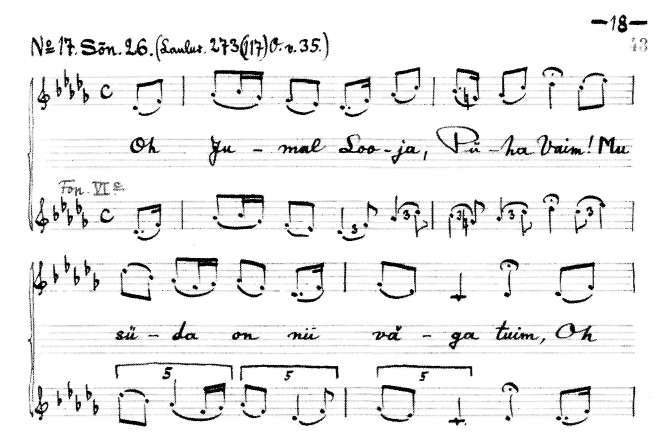 –18–
№ 17. Sõn. 26. (Laulur. 273 (117) O. v. 35.)
43
Oh Ju - mal Loo - ja, Pü - ha Vaim! Mu
Fon. VIa
3 3 3 3 3
sü - da on nii vä - ga tuim, Oh
5 5 5